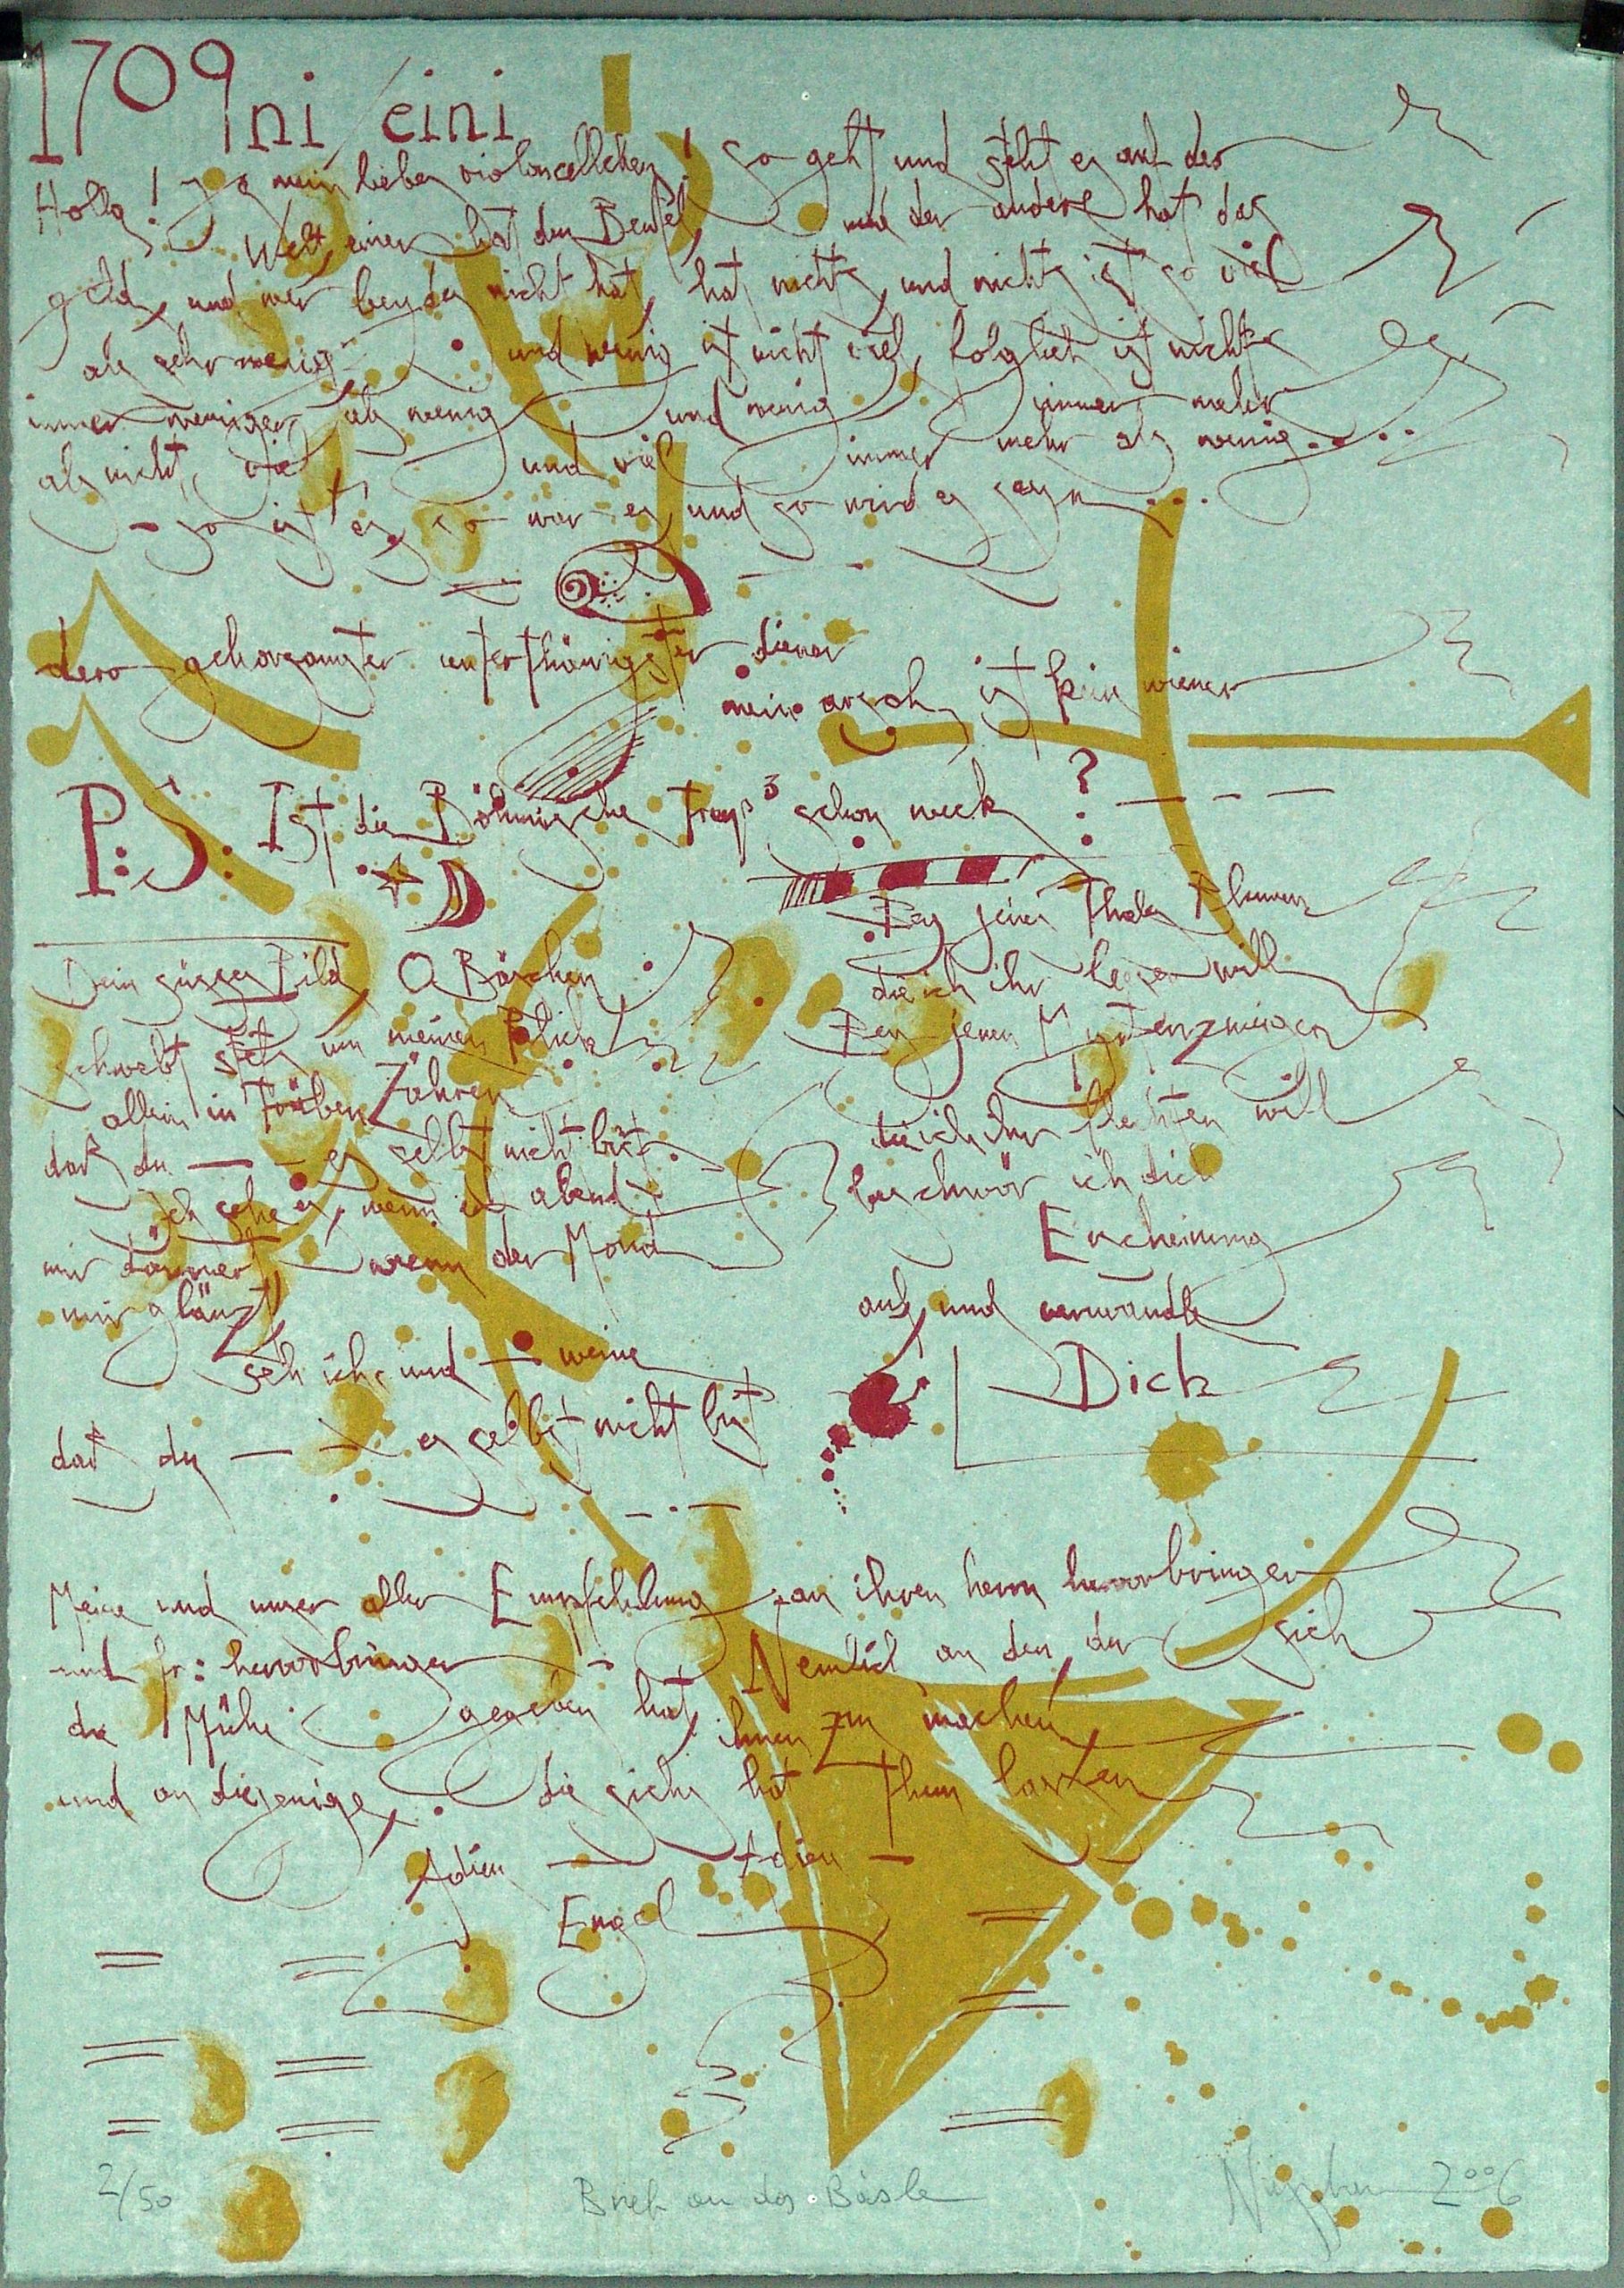 1709ni eini
Holla! ja mein liebes violoncellchen! so geht und steht es auf der
Welt, einer hat den Beutel, und der andere hat das
geld, und wer beydes nicht hat, hat nichts, und nichts ist so viel
als sehr wenig und wenig ist nicht viel, folglich ist nichts
immer weniger als wenig und wenig immer mehr
als nicht viel und viel immer mehr als wenig.....
- so ist es, so war es und so wird es seyn...
dero gehorsamster unterthänigster diener
mein arsch ist kein wiener
P:S: Ist die Böhmische trup schon weck ?
Dein süsses Bild, O Bäschen
schwebt stets um meinen Blick
allein in trüben Zähren
daß du — - es selbst nicht bist.
Ich sehe es, wenn der abend
mir dämmert wenn der Mond
mir glänzt,
seh ichs und — weine
daß du — - es selbst nicht bist
Bey jenes Thales Blumen
die ich ihr lesen will
Bey jenen Myrtenzweigen
die ich ihr flechten will
beschwör ich dich
Erscheinung
auf, und verwandle
Dich
Meine und unser aller Empfehlung an ihren herrn hervorbringer
und fr: hervorbringerin - Nemlich an den, der sich
die Mühe gegeben hat, ihnen zu machen,
und an diejenige, die sichs hat thun lassen
Adieu — Adieu —
Engel
2/50 Brief an das Bäsle 2006